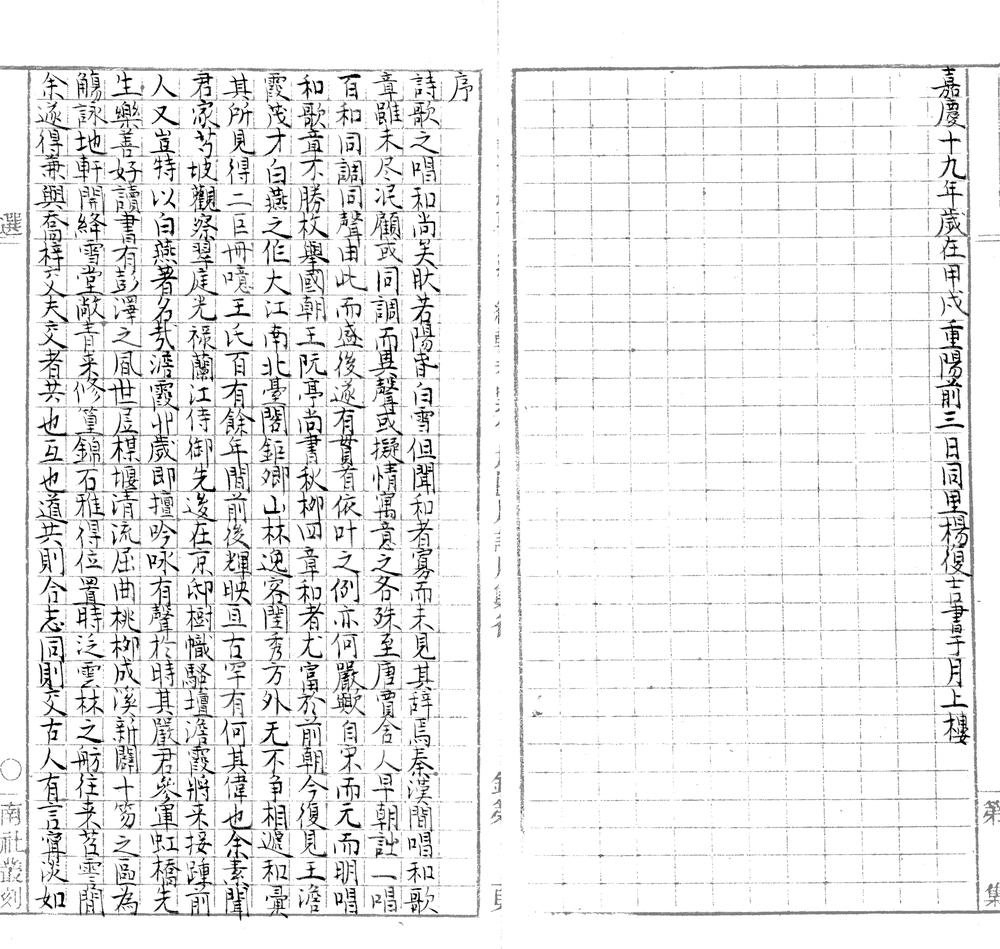 嘉慶十九年歲在甲戌重陽前三日同里楊復吉書于月上樓
序
詩歌之唱和尚矣肰若陽春白雪但聞和者寡而未見其辭焉秦漢間唱和歌
章雖未尽泯顧或同調而異聲或擬情寓意之各殊至唐賈舍人早朝詩一唱
百和同調同聲由此而盛後遂有貫首依叶之例亦何嚴歟自宋而元而明唱
和歌章不勝枚舉國朝王阮亭尚書秋柳四章和者尤富於前朝今復見王澹
霞茂才白燕之作大江南北臺閣鉅卿山林逸客閨秀方外无不争相遞和彙
其所見得二巨冊噫王氏百有餘年間前後輝映亘古罕有何其偉也余素聞
君家芍坡觀察翠庭光禄蘭江侍御先後在京邸樹幟騷壇澹霞將来接踵前
人又豈特以白燕著名㢤澹霞丱歲即擅吟咏有聲於時其嚴君參軍虹橋先
生樂善好讀書有彭澤之風世居楳堰清流屈曲桃柳成溪新闢十笏之區為
觴詠地軒開絳雪堂敞青来修篁錦石雅得位置時泛雲林之舫往来苕霅間
余遂得兼與喬梓交夫交者共也互也道共則合志同則交古人有言寧淡如
選
○南社叢刻
第
集